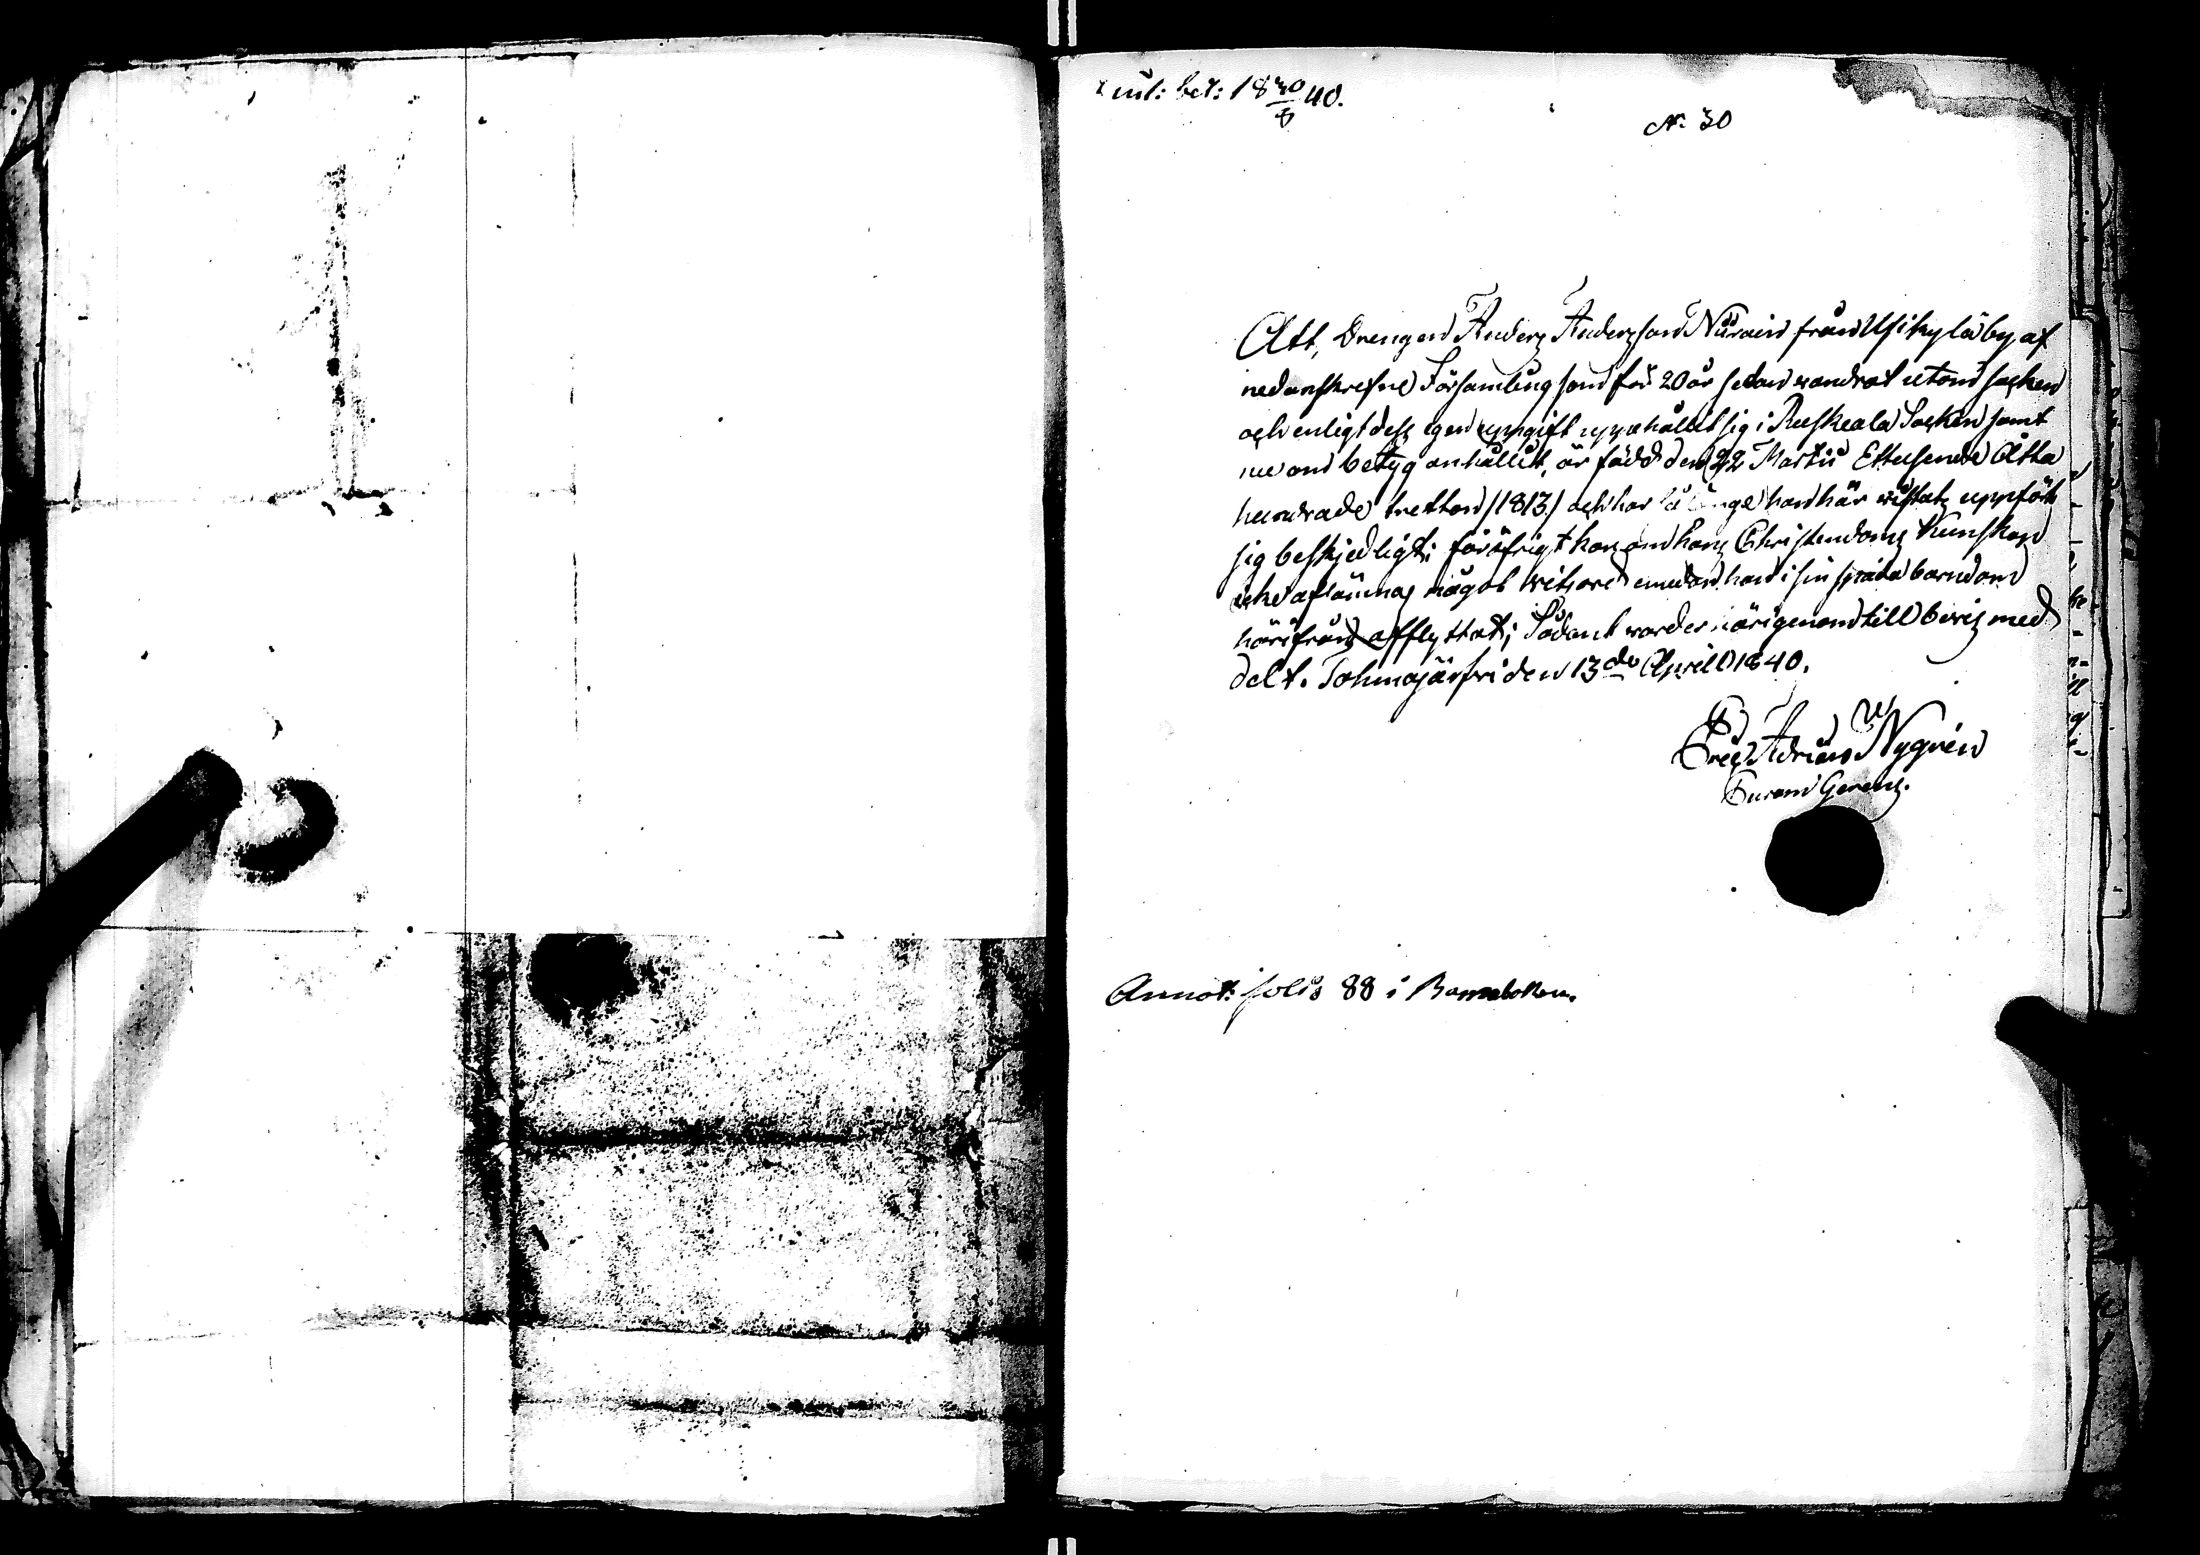 int: bet: 18 30/8 40.
N: 30
Att, Drengen Anders Andersson Nuvain från Usikylä by af
nedanskrefne Församling som för 20 år sedan vandrat utom socken
och enligt dess egen uppgift uppehållit sig i Ruskeala Socken samt
nu om betyg anhållit, är född den 22 Martii Ettusende Åtta
hundrade tretton /1813/ och har så länge han här vistats uppfört
sig beskjedligt; för öfrigt kan om hans Christendoms Kunskap
icke aflämnas något witsord emedan han i sin späda barndom
härifrån afflyttat; Sådant varder härigenom till bevis med
delt. Tohmajärfvi den 13de April 1840.
Eric Adrian Nygrén
Gerens.
Annot: folio 88 i Barnaboken.